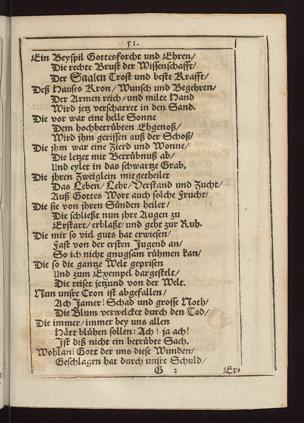 51.
Ein Beyspil Gottesforcht und Ehren/
Die rechte Brust der Wissenschafft/
Der Saalen Trost und beste Krafft/
Deß Hauses Kron/ Wunsch und Begehren/
Der Armen reich/ und milte Hand
Wird jetz verscharret in den Sand.
Die vor war eine helle Sonne
Dem hochberühren Ehgenoß/
Wird jhm gerissen auß der Schoß/
Die jhm war eine Zierd und Wonne/
Die letzet mit Betrübnuß ab/
Und eylet in das schwartze Grab.
Die jhren Zweiglein mitgetheilet
Das Leben/ Lehr/ Verstand und Zucht/
Auß Gottes Wort auch solche Frucht/
Die sie von jhren Sünden heilet/
Die schließt nun jhre Augen zu
Erstart/ erblaßt/ und geht zur Ruh.
Die mir so viel guts hat erwiesen/
Fast von der ersten Jugend an/
So ich nicht gnugsam rühmen kan/
Die so die gantze Welt gepriesen
Und zum Exempel dargestelt/
Die reiset jetzund von der Welt.
Nun unsre Cron ist abgefallen/
Ach Jamer! Schad und grosse Noth/
Die Blum verwelcket durch den Tod/
Die immer/ immer bey uns allen
Hätt blühen sollen: Ach! ja ach!
Ist diß nicht ein betrübte Sach.
Wohlan! Gott der uns diese Wunden/
Geschlagen hat durch unsre Schuld/
G 2 Er-